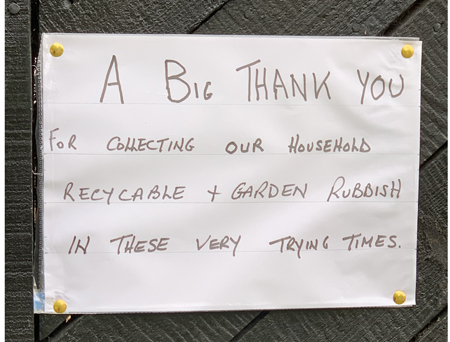 A BIG THANK YOU
FOR COLLECTING OUR HOUSEHOLD
RECYCABLE + GARDEN RUBBISH
IN THESE VERY TRYING TIMES.